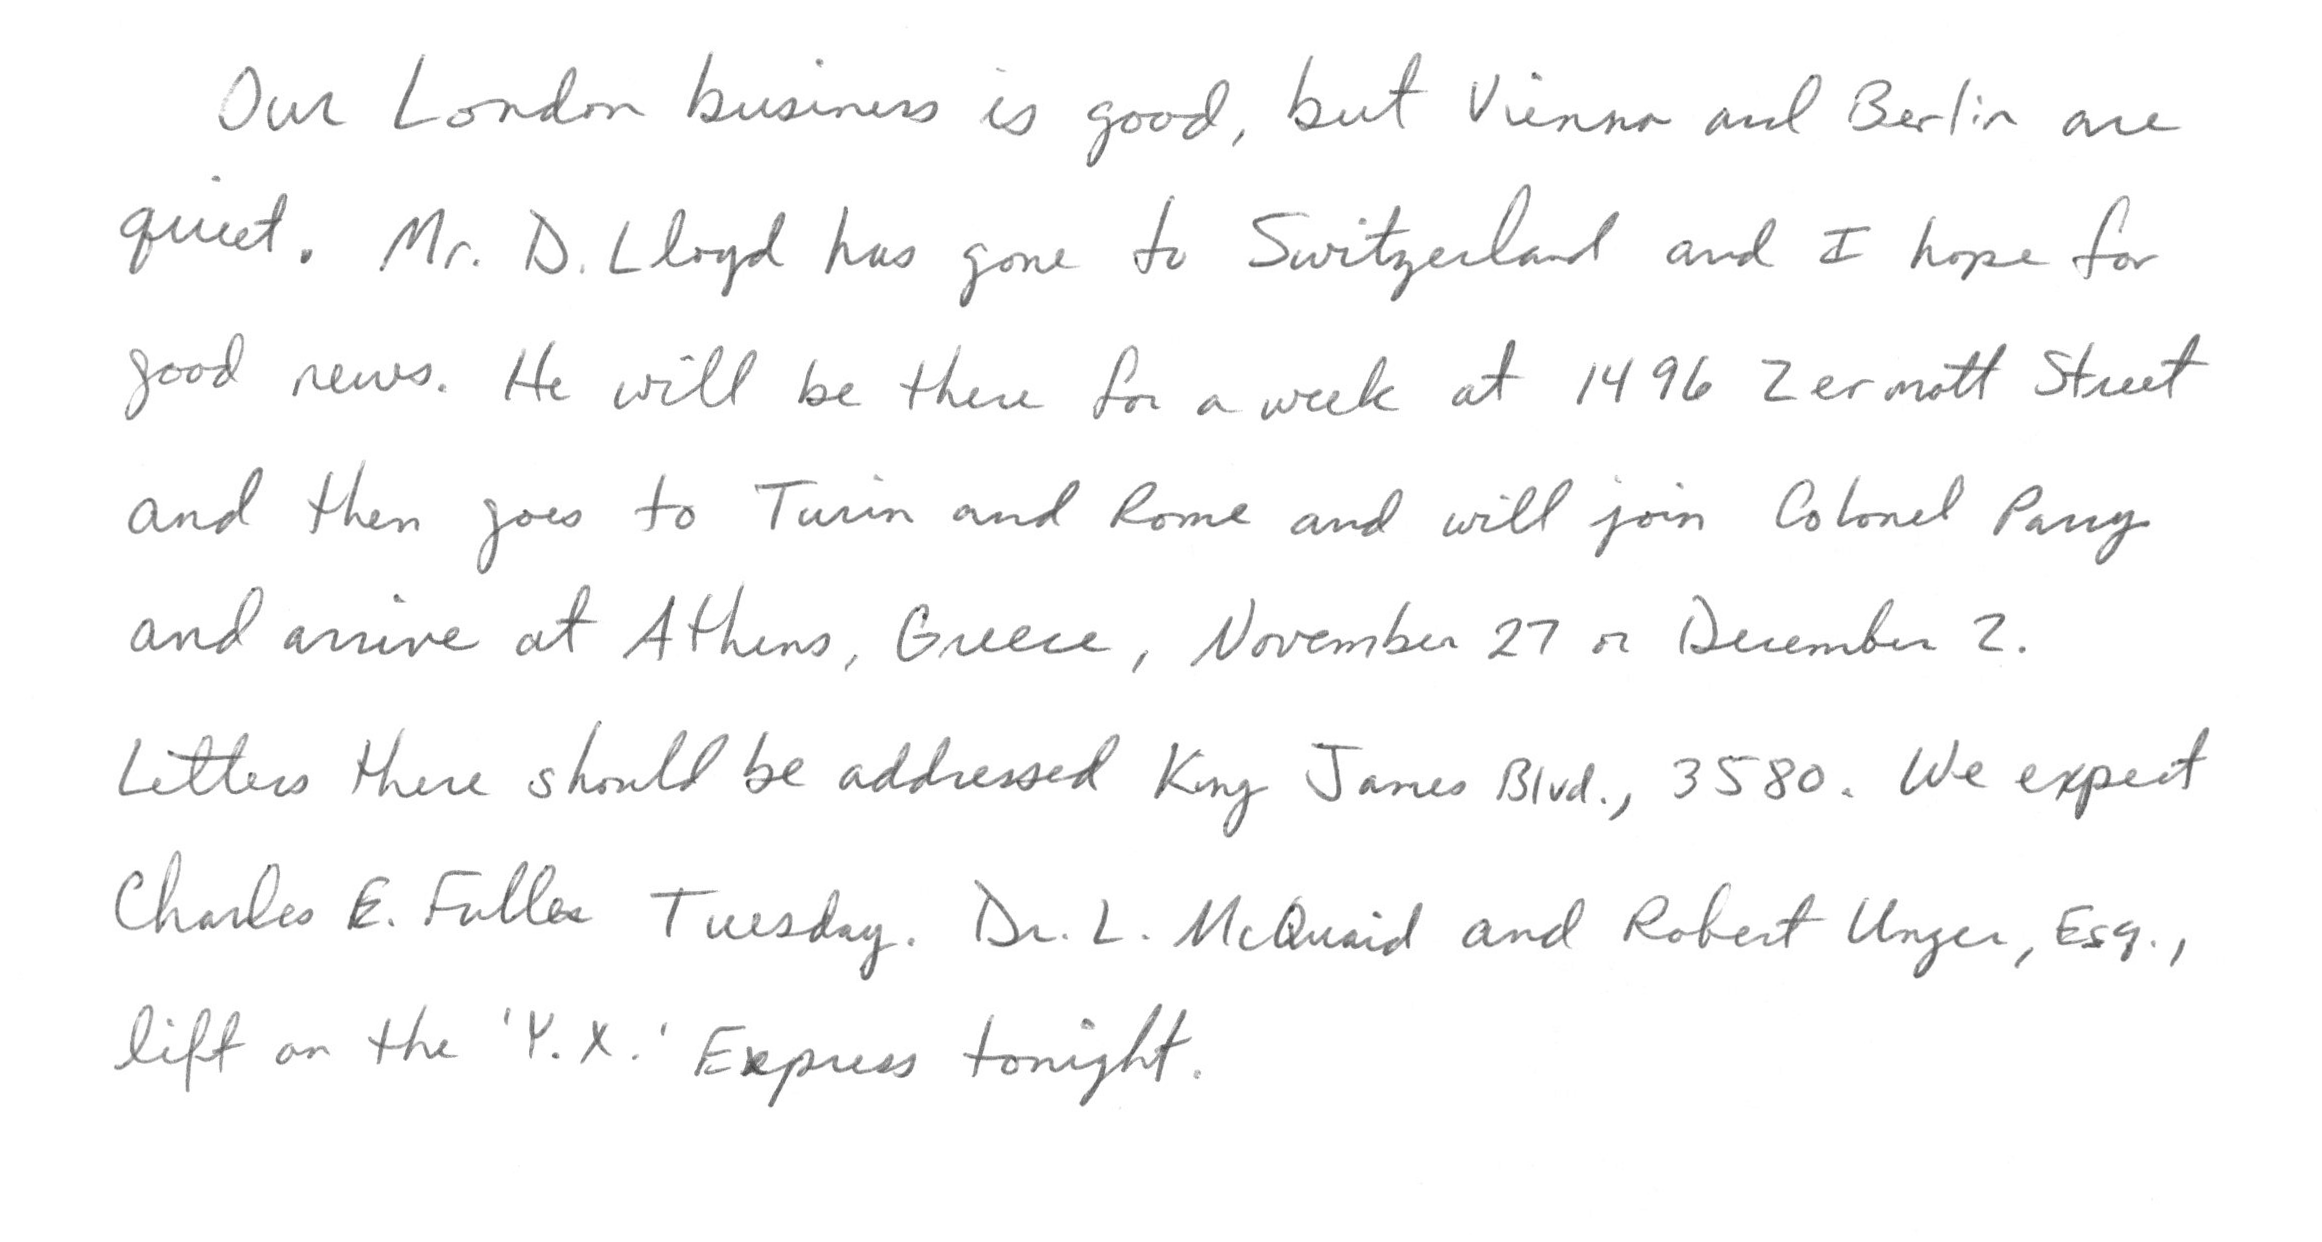 Our London business is good, but Vienna and Berlin are
quiet. Mr. D. Lloyd has gone to Switzerland and I hope for
good news. He will be there for a week at 1496 Zermott Street
and then goes to Turin and Rome and will join Colonel Parry
and arrive at Athens, Greece, November 27 or December 2.
Letters there should be addressed King James Blvd., 3580. We expect
Charles E. Fuller Tuesday. Dr. L. McQuaid and Robert Unger, Esq.,
lift on the 'Y.X.' Express tonight.